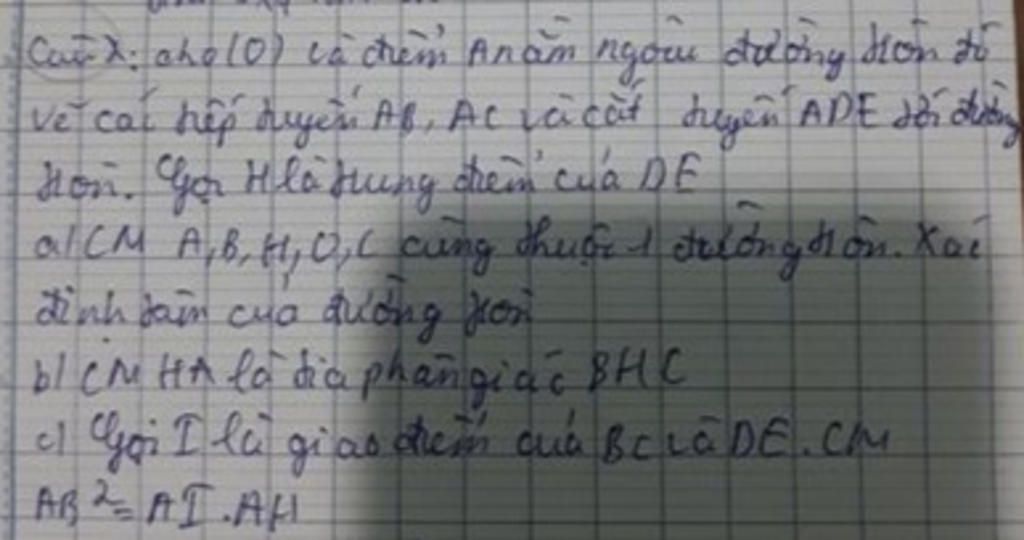 Câu 2: cho (O) và điểm A nằm ngoài đường tròn đó
vẽ các tiếp tuyến AB, AC và cát tuyến ADE tới đường
tròn. Gọi H là trung điểm của DE
a) CM A, B, H, O, C cùng thuộc 1 đường tròn. Xác
định tâm của đường tròn
b) CM HA là tia phân giác BHC
c) Gọi I là giao điểm của BC và DE. CM
AB² = AI.AH